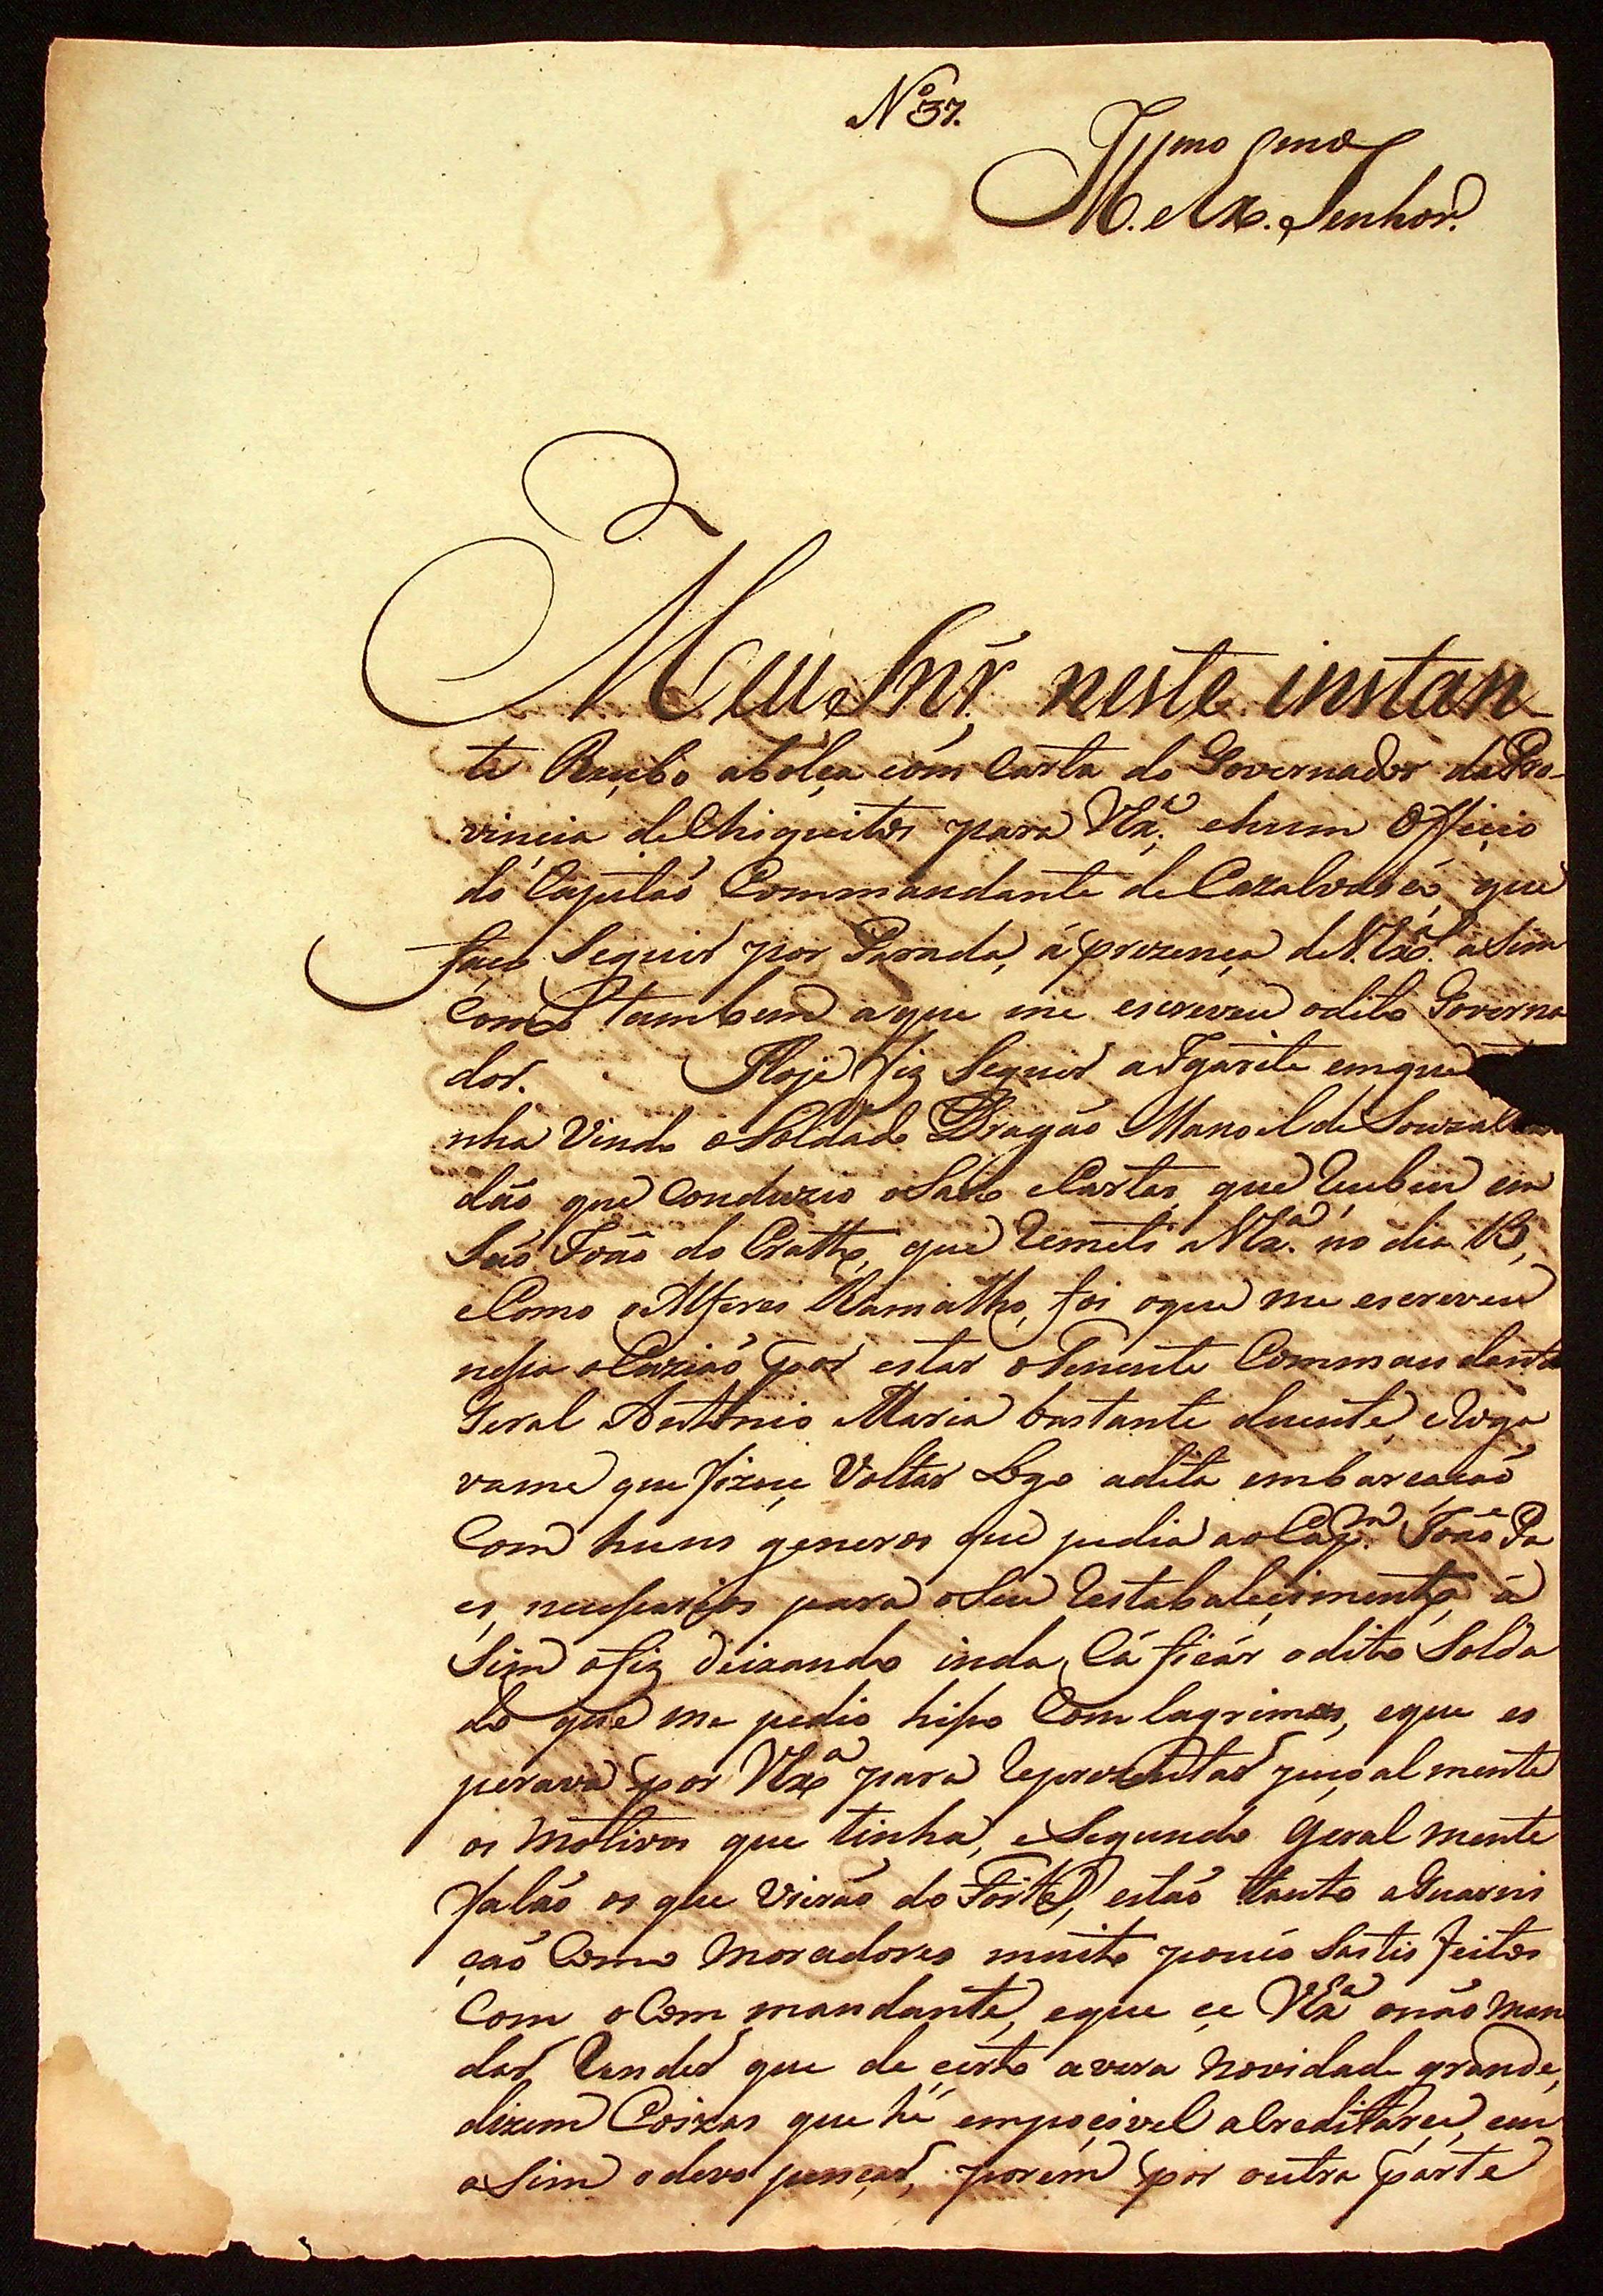 Nº 37.
Illmo e Exmo Senhor.
Meu Snr., neste instan-
te Reçebo aboleça com Carta do Governador da Pro-
vincia de Chiquitos para VExª, ehum Offiçio
do Capitaõ Commandante de Cazalvasco, que
faço Seguir por Parada, á prezença de V. Exª. aSim
Como tambem aque me escreveu odito Governa
dor. Hoje fiz Seguir a Igarite emque
nha Vindo oSoldado Dragaõ Manoel de Souza
daõ que Conduzio oSaco eCartas, que Recebeu em
Saõ Joaõ do Cratto, que Remeti a VExª. no dia 13,
eComo oAlferes Ramalho, foi oque me escreveu
nessa oCaziaõ por estar oTenente Commandante
Geral Antonio Maria bastante duente, eRoga
vame que fizeçe Voltar Logo adita embarcaçaõ
Com huns generos que pedia ao Capm. Joaõ Pa
es, neçessarios para oSeu Restabaleçimento, á
Sim ofiz deixando inda Cá ficár odito Solda
do que me pedio hisso Com lagrimas, eque es
perava por VExª para Reprezentar peçoal mente
os Motivos que tinha, eSegundo geral mente
falaõ os que Vieraõ do Forte, estaõ tanto aGuarni
çaõ Como Moradores muito pouco Sastis feitos
Com oCom mandante, eque çe VExª onaõ Man
dar Render que de çerto avera Novidade grande,
dizem Coizas que hé empoçivel aCreditarçe, eu
aSim odevo pençar, porem por outra parte